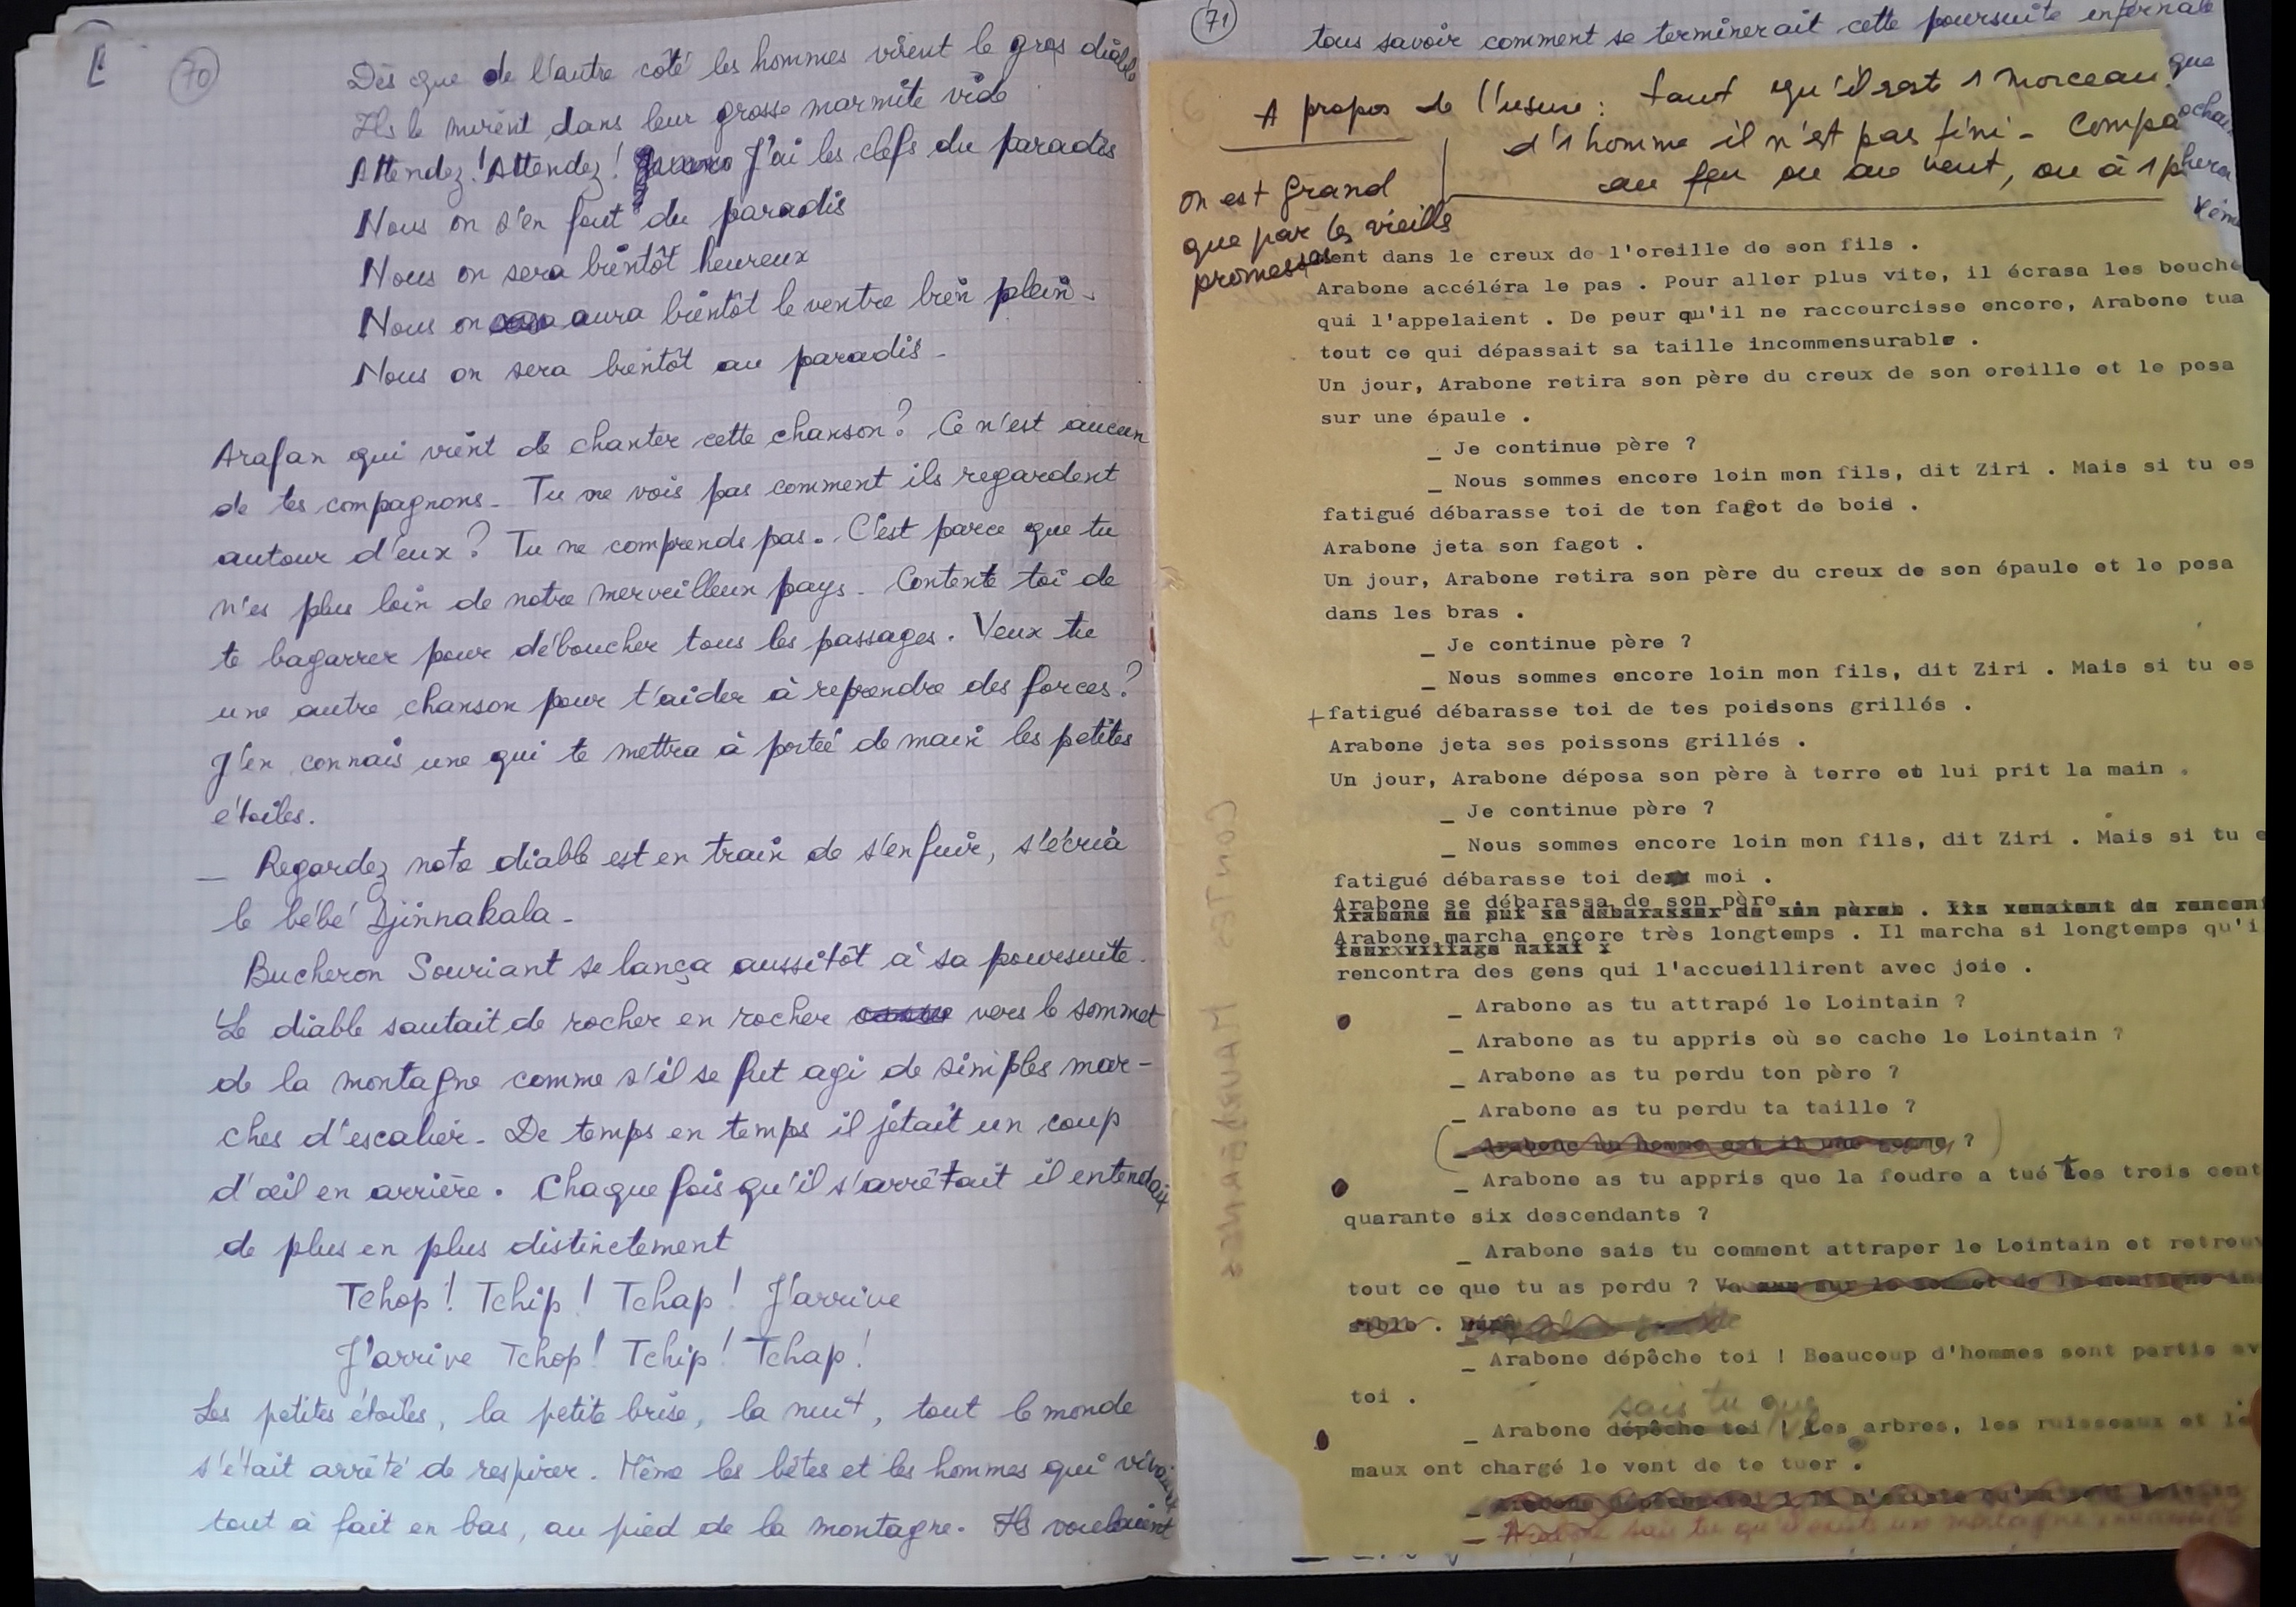 70
Dès que de l'autre coté les hommes virent le gros diable
Ils le mirent dans leur grosse marmite vide
Attendez! Attendez! J'ai les clefs du paradis
Nous on s'en fout du paradis
Nous on sera bientôt heureux
Nous on aura bientôt le ventre bien plein.
Nous on sera bientôt au paradis.
Arafan qui vient de chanter cette chanson? Ce n'est aucun
de tes compagnons. Tu ne vois pas comment ils regardent
autour d'eux? Tu ne comprends pas. C'est parce que tu
n'es plus loin de notre merveilleux pays. Contente toi de
te bagarrer pour déboucher tous les passages. Veux tu
une autre chanson pour t'aider à reprendre des forces?
J'en connais une qui te mettra à portée de main les petites
étoiles.
_ Regardez note diable est en train de s'enfuir, s'écria
le bébé Djinnakala.
Bucheron Souriant se lança aussitôt à sa poursuite.
Le diable sautait de rocher en rocher vers le sommet
de la montagne comme s'il se fut agi de simples mar-
ches d'escalier. De temps en temps il jetait un coup
d'œil en arrière. Chaque fois qu'il s'arrêtait il entendait
de plus en plus distinctement
Tchop! Tchip! Tchap! J'arrive
J'arrive Tchop! Tchip! Tchap!
Les petites étoiles, la petite brise, la nuit, tout le monde
s'était arrêté de respirer. Même les bêtes et les hommes qui vivaient
tout à fait en bas, au pied de la montagne. Ils voulaient
71
tous savoir comment se terminerait cette poursuite infernale
que
A propos de l'usure: tant qu'il reste 1 morceau
d'1 homme il n'est pas fini - Compa
au feu ou au vent, ou à 1
on est grand
que par les vieilles
promesses
ment dans le creux de l'oreille de son fils .
Arabone accéléra le pas . Pour aller plus vite, il écrasa les bouche
qui l'appelaient . De peur qu'il ne raccourcisse encore, Arabone tua
tout ce qui dépassait sa taille incommensurable .
Un jour, Arabone retira son père du creux de son oreille et le posa
sur une épaule .
_ Je continue père ?
_ Nous sommes encore loin mon fils, dit Ziri . Mais si tu es
fatigué débarasse toi de ton fagot de bois .
Arabone jeta son fagot .
Un jour, Arabone retira son père du creux de son épaule et le posa
dans les bras .
_ Je continue père ?
_ Nous sommes encore loin mon fils, dit Ziri . Mais si tu es
+ fatigué débarasse toi de tes poissons grillés .
Arabone jeta ses poissons grillés .
Un jour, Arabone déposa son père à terre et lui prit la main .
_ Je continue père ?
_ Nous sommes encore loin mon fils, dit Ziri . Mais si tu e
fatigué débarasse toi de moi .
Arabone se débarassa de son père
Arabone ne put se débarasser de son père . Ils venaient de rencont
Arabone marcha encore très longtemps . Il marcha si longtemps qu'i
leur village natal
rencontra des gens qui l'accueillirent avec joie .
_ Arabone as tu attrapé le Lointain ?
_ Arabone as tu appris où se cache le Lointain ?
_ Arabone as tu perdu ton père ?
_ Arabone as tu perdu ta taille ?
(_ Arabone un homme est il une ?)
_ Arabone as tu appris que la foudre a tué tes trois cent
quarante six descendants ?
_ Arabone sais tu comment attraper le Lointain et retrouv
tout ce que tu as perdu ? Va sur le sommet de la montagne in
sible .
_ Arabone dépêche toi ! Beaucoup d'hommes sont partis av
toi .
sais tu que
_ Arabone dépêche toi ! Les arbres, les ruisseaux et le
maux ont chargé le vent de te tuer .
_ Arabone dépêche toi ! Il n'existe qu'un seul
_ Arabone sais tu qu'il existe une montagne
CONTES MAURYANENS